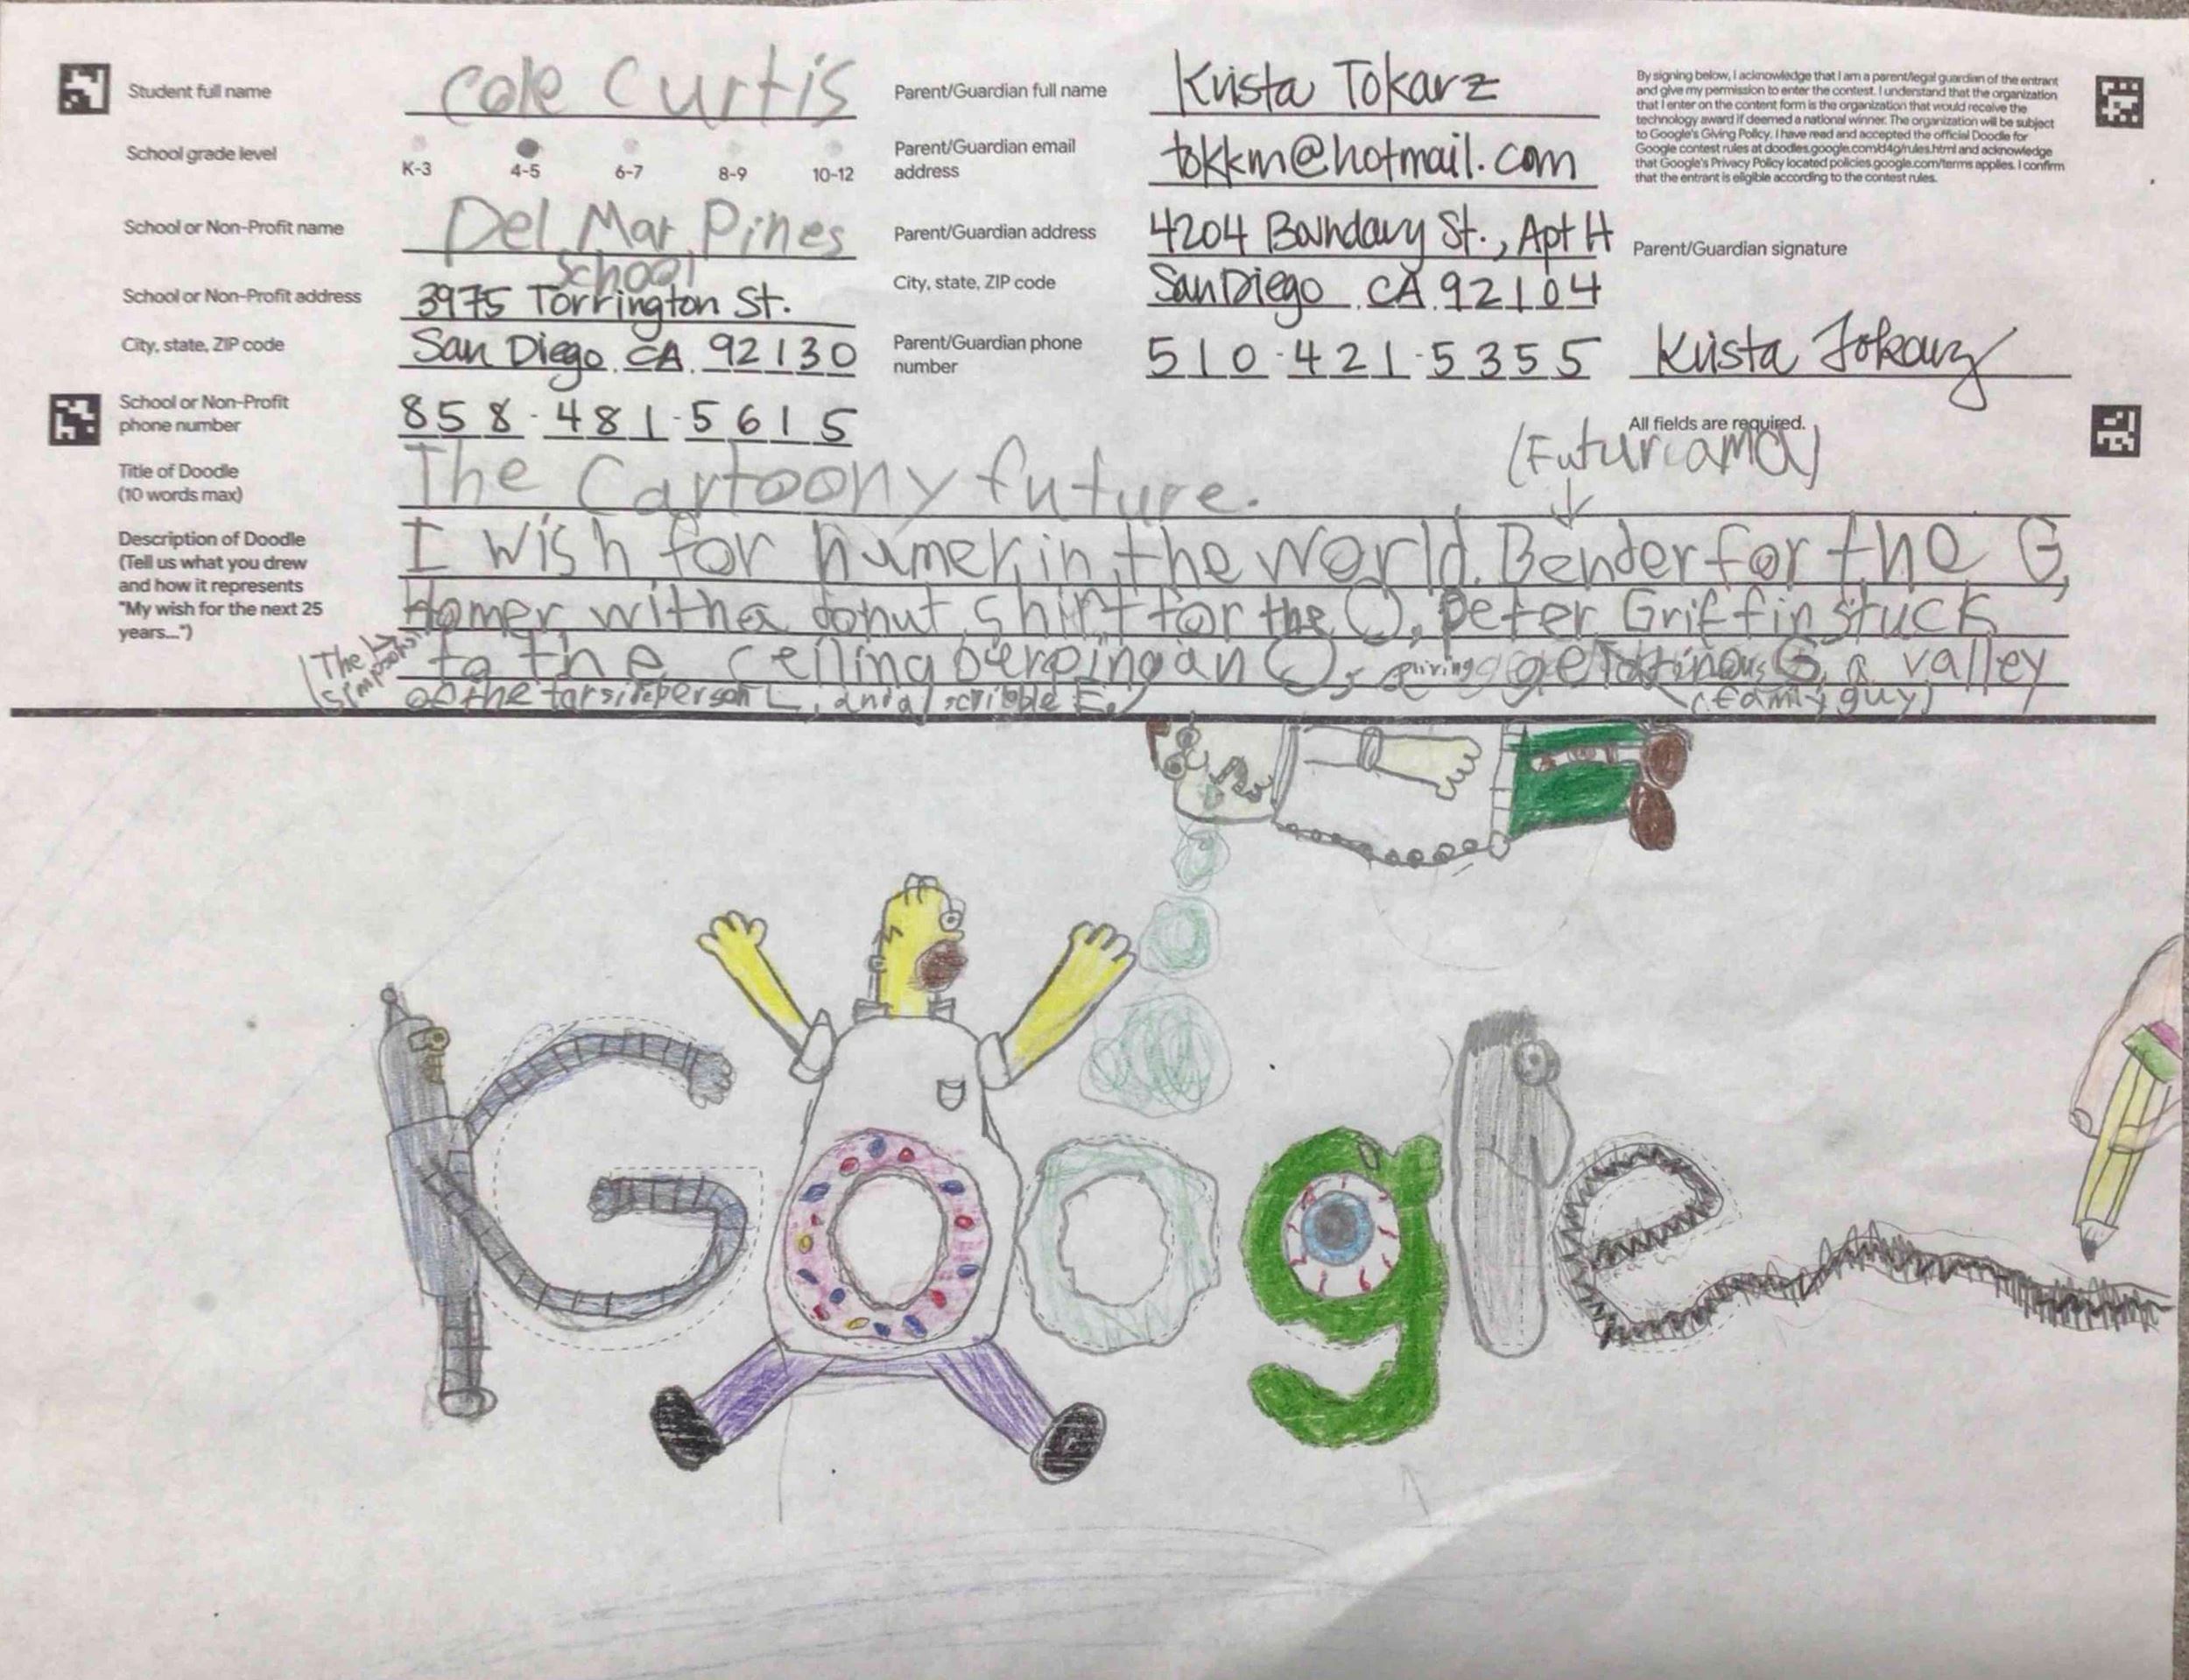 Student full name Cole Curtis
School grade level
K-3 4-5 6-7 8-9 10-12
School or Non-Profit name Del Mar Pines School
School or Non-Profit address 3975 Torrington St.
City, state, ZIP code San Diego, CA 92130
School or Non-Profit phone number 858-481-5615
Parent/Guardian full name Krista Tokarz
Parent/Guardian email address tokkm@hotmail.com
Parent/Guardian address 4204 Boundary St., Apt H
City, state, ZIP code San Diego CA 92104
Parent/Guardian phone number 510-421-5355
By signing below, I acknowledge that I am a parent/legal guardian of the entrant
and give my permission to enter the contest. I understand that the organization
that I enter on the content form is the organization that would receive the
technology award if deemed a national winner. The organization will be subject
to Google's Giving Policy. I have read and accepted the official Doodle for
Google contest rules at doodles.google.com/d4g/rules.html and acknowledge
that Google's Privacy Policy located policies.google.com/terms applies. I confirm
that the entrant is eligible according to the contest rules.
Parent/Guardian signature
Krista Tokarz
All fields are required.
Title of Doodle
(10 words max)
The Cartoony future.
(Futurama)
Description of Doodle
(Tell us what you drew
and how it represents
"My wish for the next 25
years...")
I wish for humer in the world. Bender for the G,
Homer with a donut shirt for the O, peter Griffin stuck
(The Simpsons)
to the ceiling burping an O, a valley
of the far side person L, and a scribble E.
(family guy)
Google